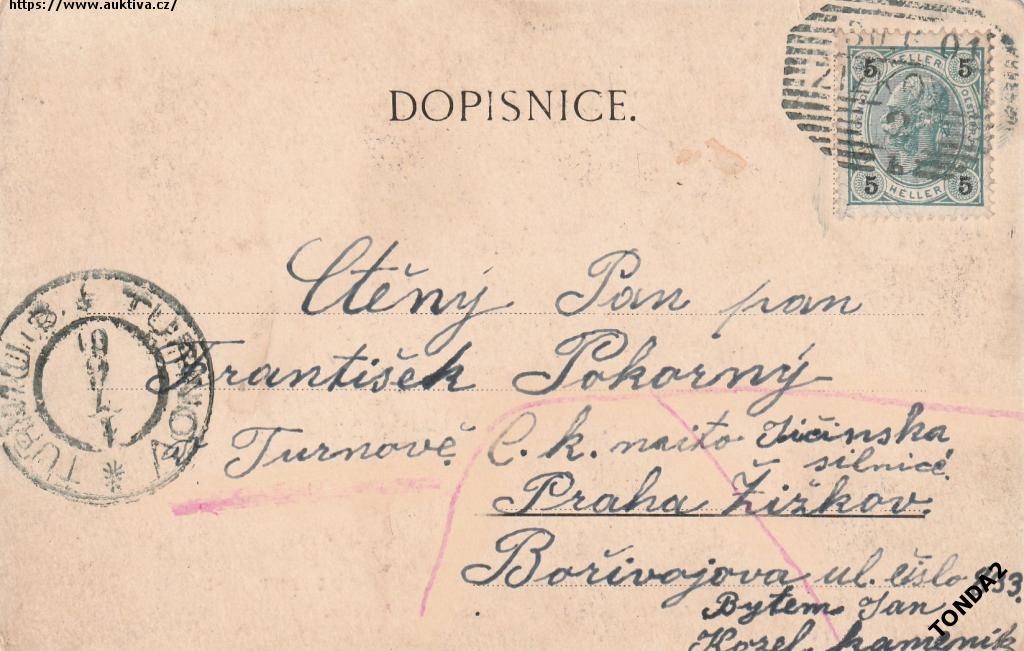 https://www.auktiva.cz/
DOPISNICE.
5 HELLER 5
5 HELLER 5
TURNAU TURNOV
Ctěný Pan pan
František Pokorný
v Turnově C. k. Jičinska
silnicě
Praha Žižkov.
Bořivojova ul. čislo
Bytem Jan
Kozel kamenik
TONDA2